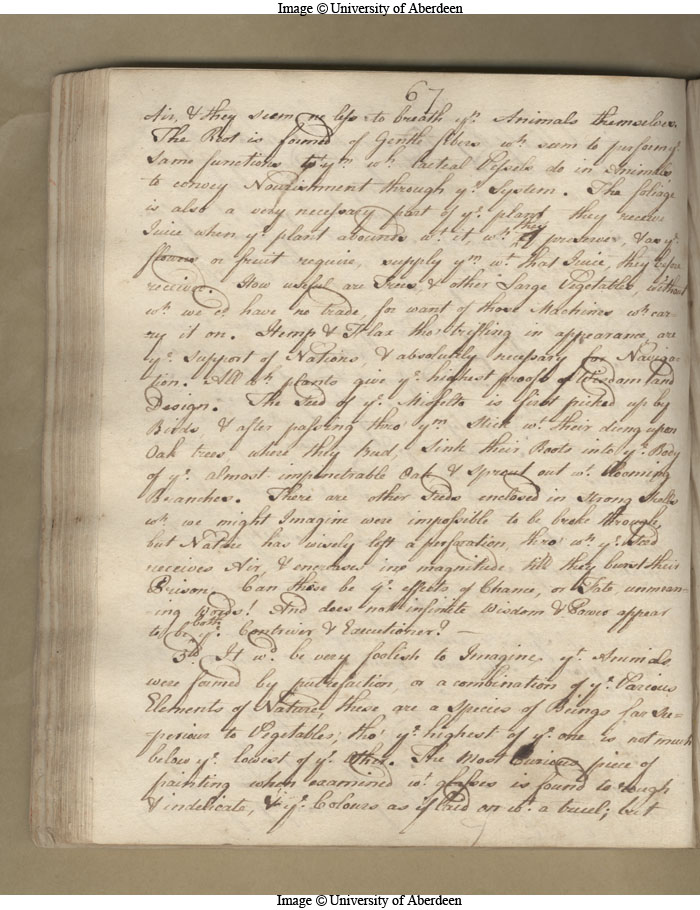 Image © University of Aberdeen
67
Air, & they seem no less to breath yn. Animals themselves.
The Root is formed of Gentle fibers wh. seem to perform ye.
Same functions to ym. wh. lacteal Vessels do in Animals
to convey Nourishment through ye. System. The foliage
is also a very necessary part of ye. plant they receive
Juice when ye. plant abounds wt. it, wh. they preserve, & as ye.
flowers or fruit require, supply ym. wt. that Juice, they before
receive. How useful are Trees, & other Large Vegetables, without
wh. we cd. have no trade, for want of those Machines wh. car-
ry it on. Hemp & Flax tho' trifling in appearance, are
ye. Support of Nations & absolutely necessary for Naviga-
tion. All wh. plants give ye. highest proofs of Wisdom and
Design. The Seed of ye. Misselto is first picked up by
Birds & after passing thro' ym. Stick wt. their dung upon
Oak trees, where they bud, sink their Roots into ye. Body
of ye. almost impenetrable Oak & Sprout out wt. blooming
Branches. There are other Seeds enclosed in Strong Shells
wh. we might Imagine were impossible to be broke through,
but Nature has wisely left a perforation, thro' wh. ye. Seed
receives Air, & encreases in magnitude till they burst their
Prison. Can these be ye. effects of Chance, or Fate, unmean-
-ing Words! And does not infinite Wisdom & Power appear
to be both ye. Contriver & Executioner? —
3d. It wd. be very foolish to Imagine yt. Animals
were formed by putrefaction or a combination of ye. Various
Elements of Nature, these are a Species of Beings far Su-
perious to Vegetables; tho' ye. highest of ye. one is not much
below ye. lowest of ye. Other. The Most Curious piece of
painting when examined wt. glasses is found to rough
& indelicate, & ye. Colours as if laid on wt. a truel; but
Image © University of Aberdeen